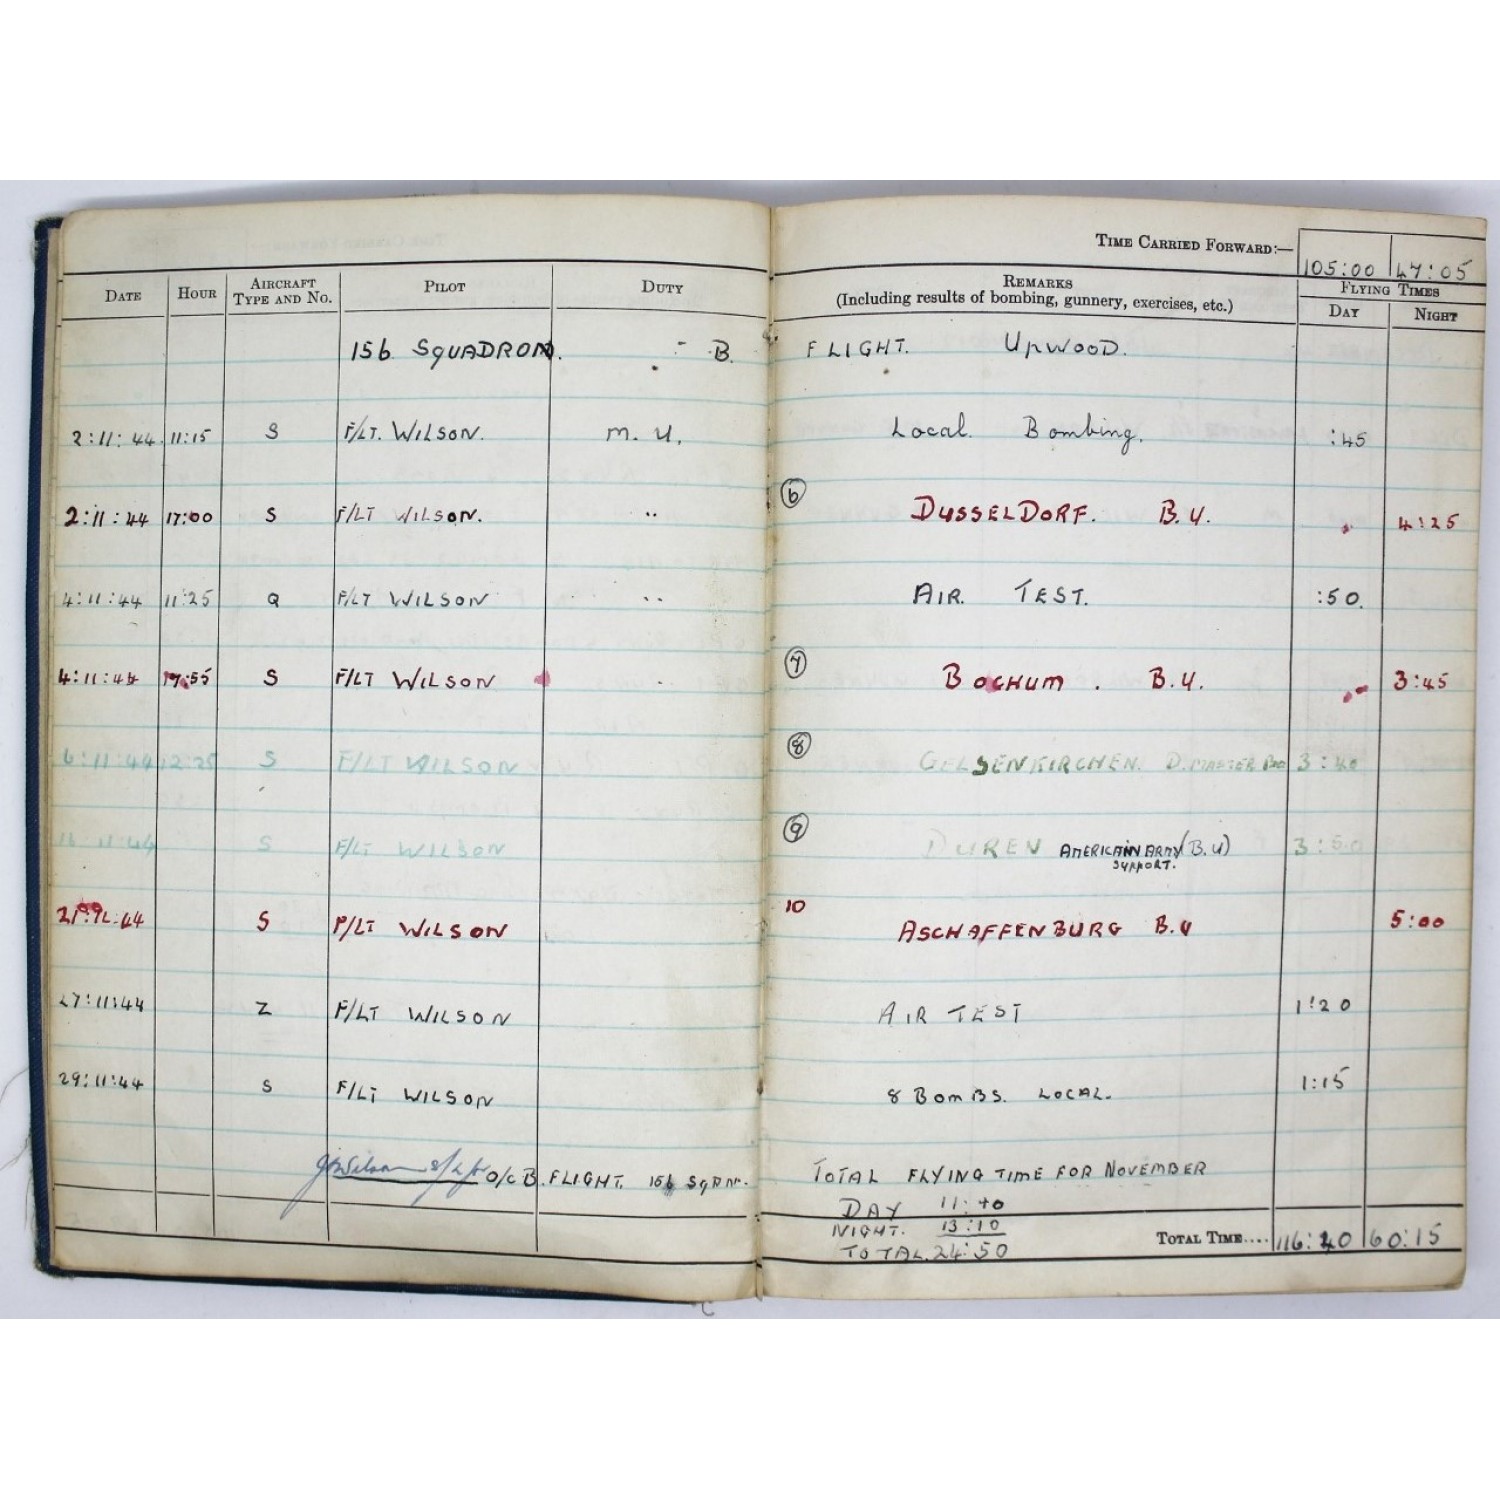 TIME CARRIED FORWARD:— 105:00 47:05
DATE HOUR AIRCRAFT TYPE AND No. PILOT DUTY REMARKS (Including results of bombing, gunnery, exercises, etc.) FLYING TIMES DAY NIGHT
156 SQUADRON. - B. FLIGHT. UPWOOD.
2:11:44. 11:15 S F/LT. WILSON. M. U. Local. Bombing. :45
2:11:44 17:00 S F/LT WILSON. " 6 DUSSELDORF. B.U. 4:25
4:11:44 11:25 Q F/LT WILSON " AIR. TEST. :50.
4:11:44 17:55 S F/LT WILSON 7 BOCHUM. B.U. 3:45
6:11:44 12:25 S F/LT WILSON 8 GELSENKIRCHEN. D. MASTER 3:40
11:44 S F/LT WILSON 9 DUREN AMERICAN ARMY (B.U) 3:50
SUPPORT.
S F/LT WILSON 10 ASCHAFFENBURG B.U 5:00
27:11:44 Z F/LT WILSON AIR TEST 1:20
29:11:44 S F/LT WILSON 8 BOMBS. LOCAL. 1:15
Wilson S/L O/C B. FLIGHT. 156 SQDN. TOTAL FLYING TIME FOR NOVEMBER
DAY 11:40
NIGHT. 13:10
TOTAL. 24:50
TOTAL TIME.... 116:40 60:15